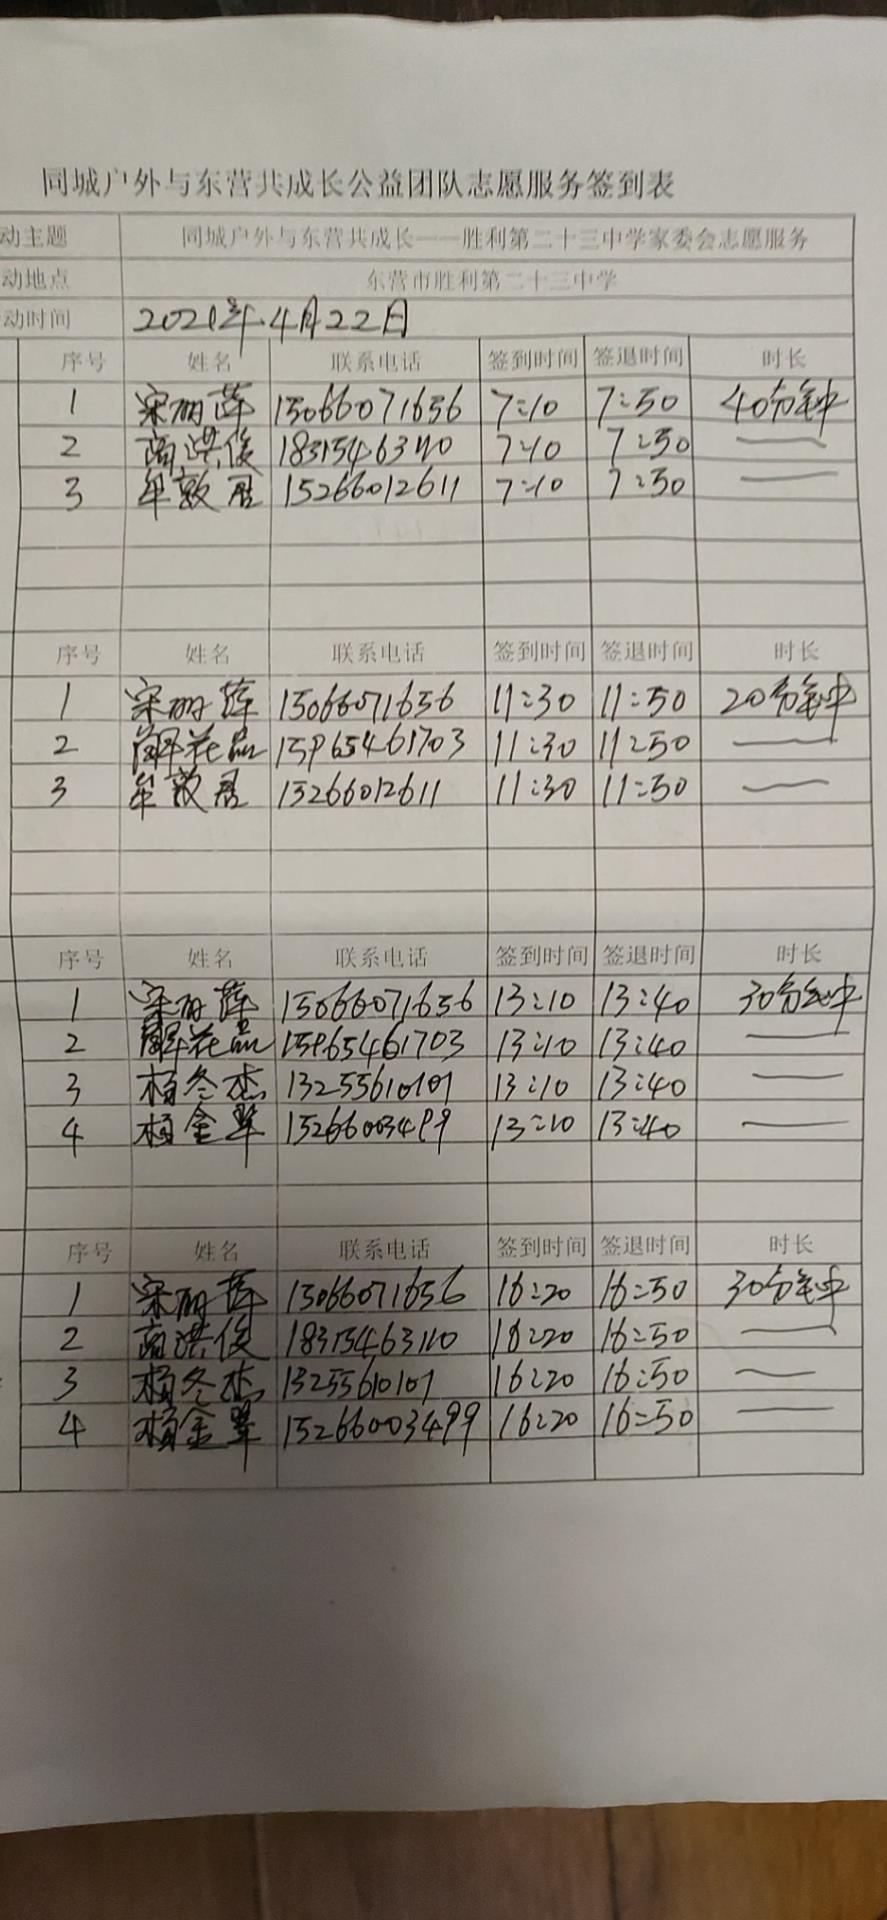 同城户外与东营共成长公益团队志愿服务签到表
动主题 同城户外与东营共成长——胜利第二十三中学家委会志愿服务
动地点 东营市胜利第二十三中学
动时间 2021年.4月22日
序号 姓名 联系电话 签到时间 签退时间 时长
1 宋丽萍 15066071656 7:10 7:50 40分钟
2 商洪俊 18315463110 7:10 7:50 ——
3 牟敦君 15266012611 7:10 7:50 ——
序号 姓名 联系电话 签到时间 签退时间 时长
1 宋丽萍 15066071656 11:30 11:50 20分钟
2 解花品 15965461703 11:30 11:50 ——
3 牟敦君 15266012611 11:30 11:50 ——
序号 姓名 联系电话 签到时间 签退时间 时长
1 宋丽萍 15066071656 13:10 13:40 30分钟
2 解花品 15965461703 13:10 13:40 ——
3 杨冬杰 13255610107 13:10 13:40 ——
4 杨金翠 15266003499 13:10 13:40 ——
序号 姓名 联系电话 签到时间 签退时间 时长
1 宋丽萍 15066071656 16:20 16:50 30分钟
2 商洪俊 18315463110 16:20 16:50 ——
3 杨冬杰 13255610107 16:20 16:50 ——
4 杨金翠 15266003499 16:20 16:50 ——